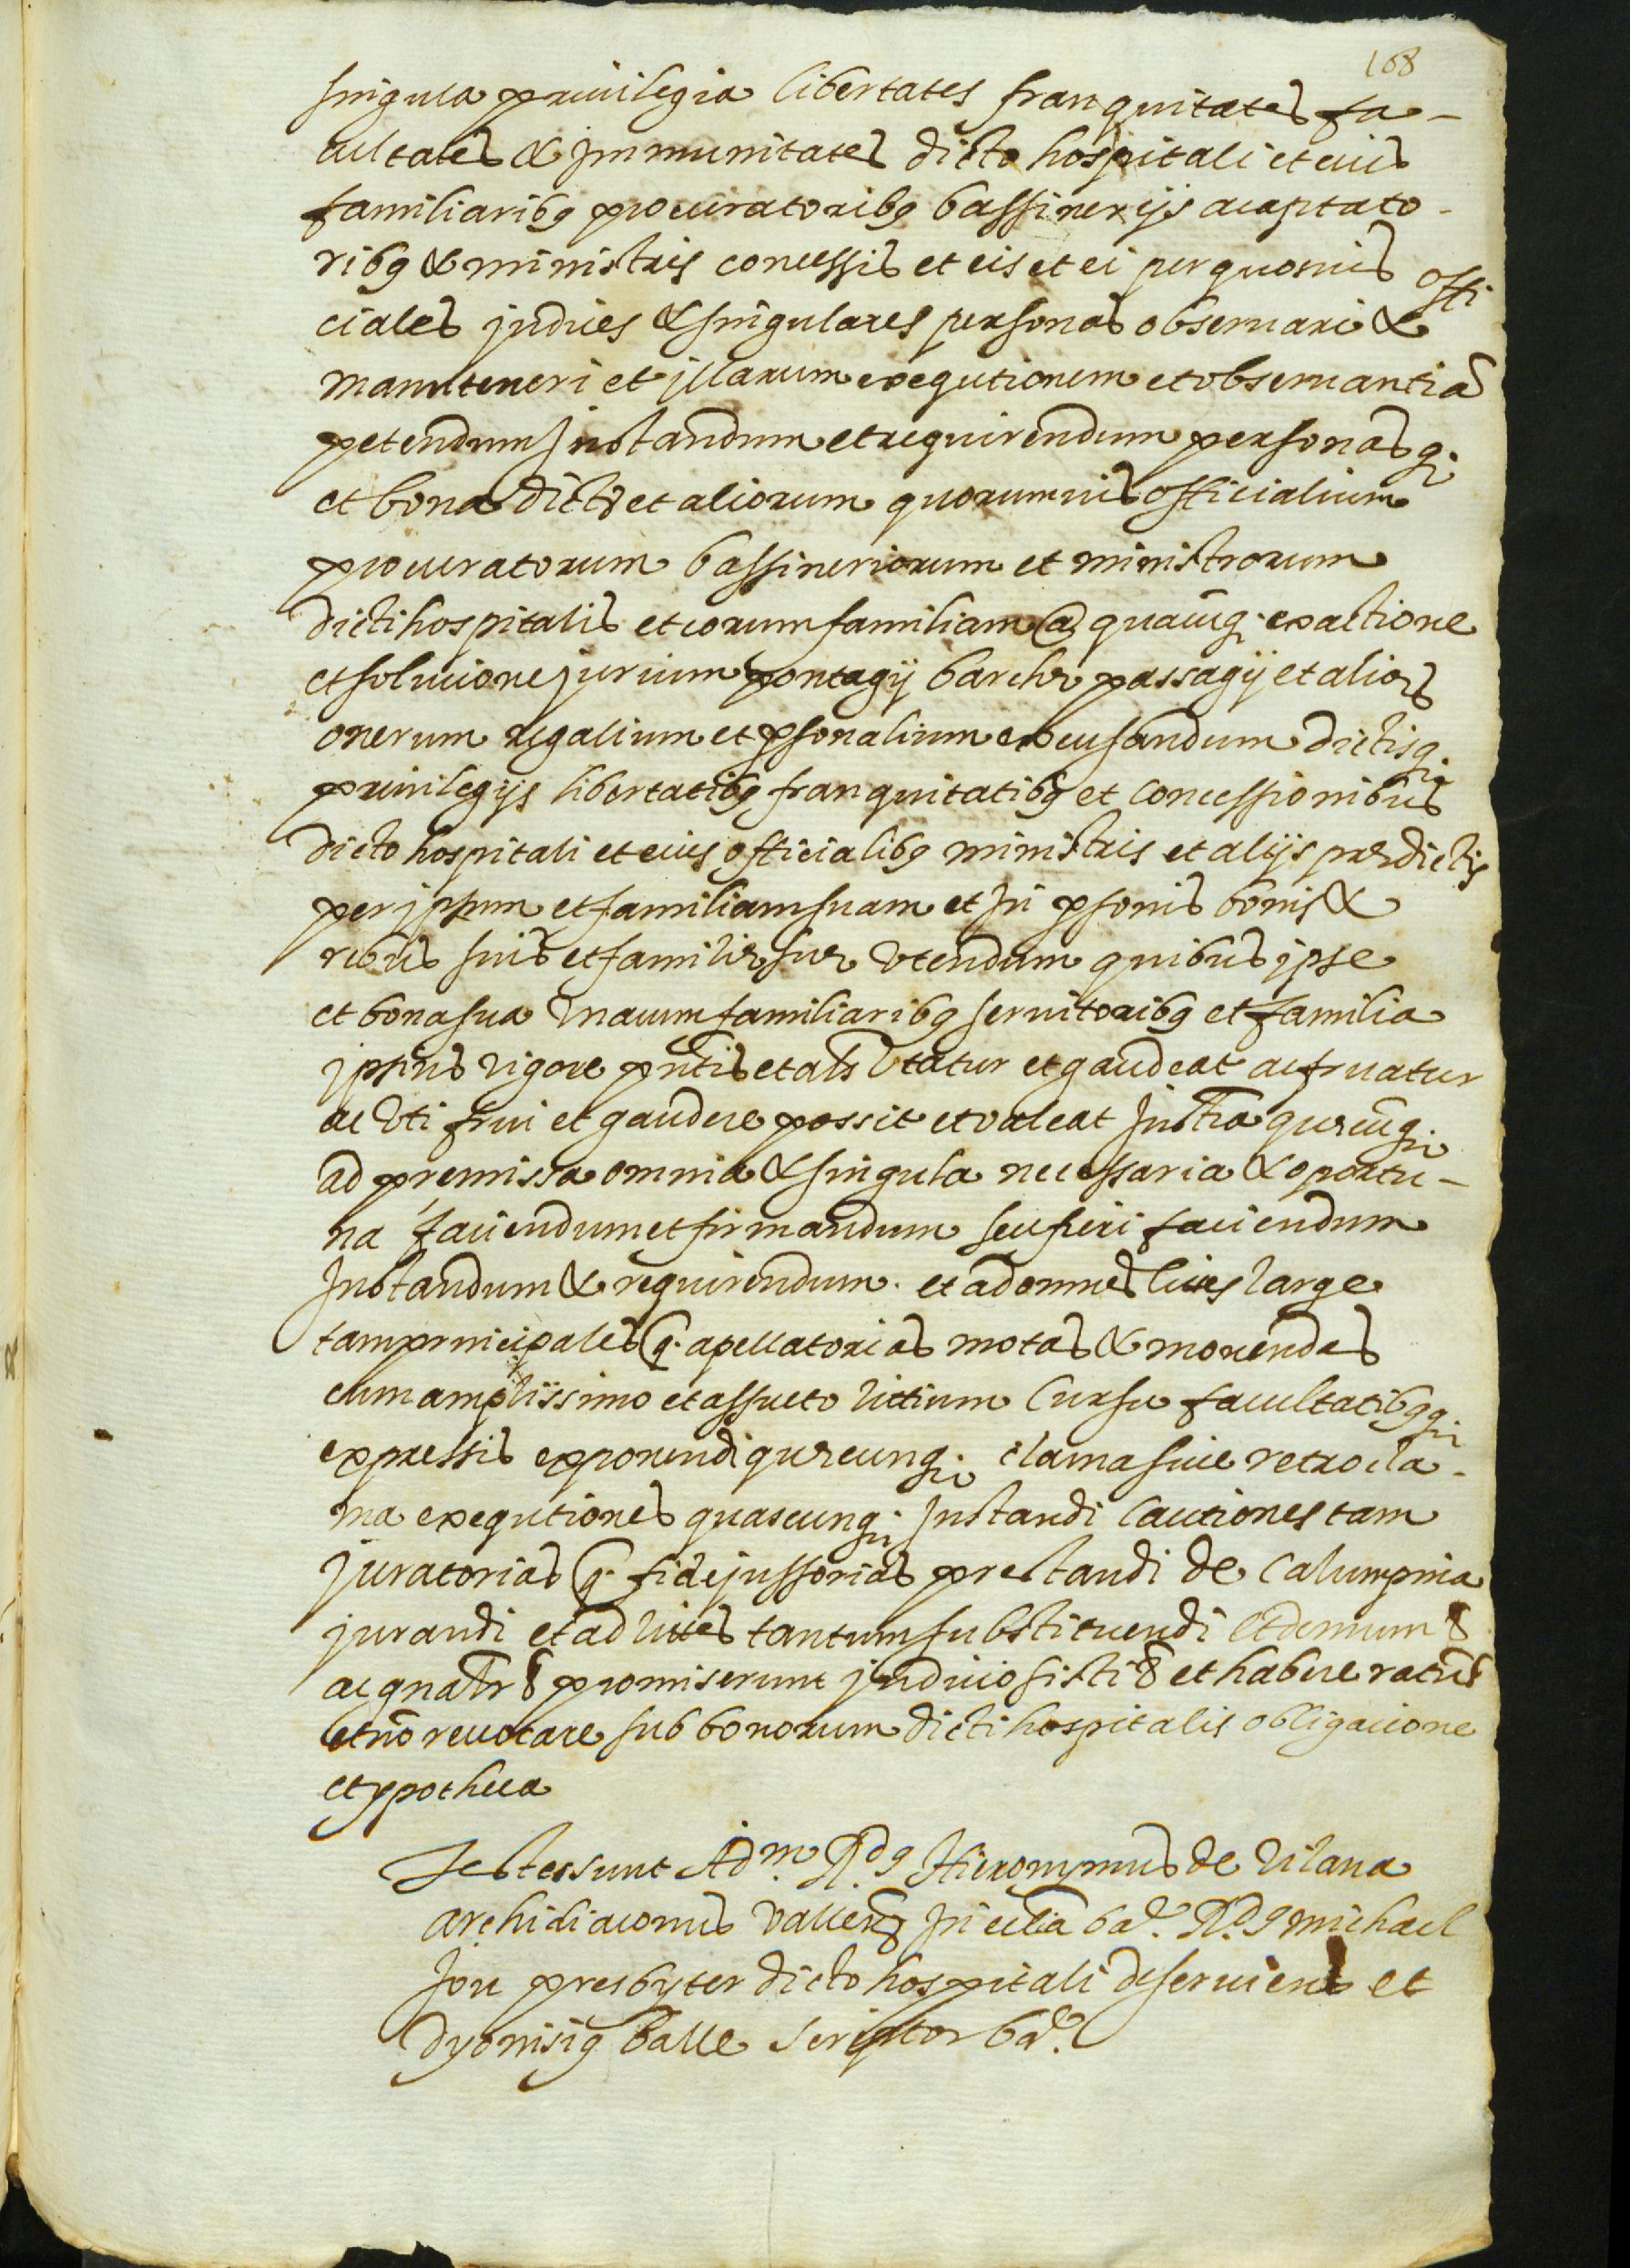 168
singula privilegia libertates franquitates fa-
cultates & Immunitates dicto hospitali et eius
familiaribꝯ procuratoribꝯ bassinerijs acaptato-
ribꝯ & ministris concessis et eis et ei per quosvis offi
ciales judices & singulares personas observari &
manuteneri et illarum exegutionem et observantiã
petendum Instandum et requirendum personasqꝫ
et bona dictę et aliorum quorumvis officialium
procuratorum bassineriorum et ministrorum
dicti hospitalis et eorum familiam @ quacũqꝫ exactione
et solucione jurium pontagij barchę passagij et alioꝝ
onerum regalium et ꝑsonalium excusandum dictisqꝫ
privilegijs libertatibꝯ franquitatibꝯ et concessionibus
dicto hospitali et eius officialibꝯ ministris et alijs prędictis
per ipsum et familiam suam et In ꝑsonis bonis &
rebus suis et familię suę utendum quibus ipse
et bona sua Unacum familiaribꝯ servitoribꝯ et familia
ipsius vigore pñtis et als Utatur et gaudeat ac fruatur
ac Uti frui et gaudere possit et valeat Instr̃a quęcũqꝫ
ad premissa omnia & singula necessaria & oportu-
na faciendum et firmandum seu fieri faciendum
Instandum & requirendum. et ad omnes lites large
tam principales q̃. apellatorias motas & movendas
cum amplissimo et assueto littium Cursu facultatibꝯqꝫ
expressis exponendi quęcunqꝫ clama sive retrocla-
ma exegutiones quascunqꝫ Instandi Cautiones tam
juratorias q̃. fidejussorias prestandi de Calumpnia
jurandi et ad lites tantum substituendi Et demum &
ac gnãlr & promiserunt judicio sisti & et habere ratũ &
et nõ revocare sub bonorum dicti hospitalis obligacione
et ypotheca
Testes sunt Adm. Rdꝯ Hieronymus de Vilana
archidiaconus Vallen̄ In ecclia ba. Rdꝯ michael
Jou presbyter dicto hospitali deserviens et
dyonisiꝯ Balle scriptor ba.